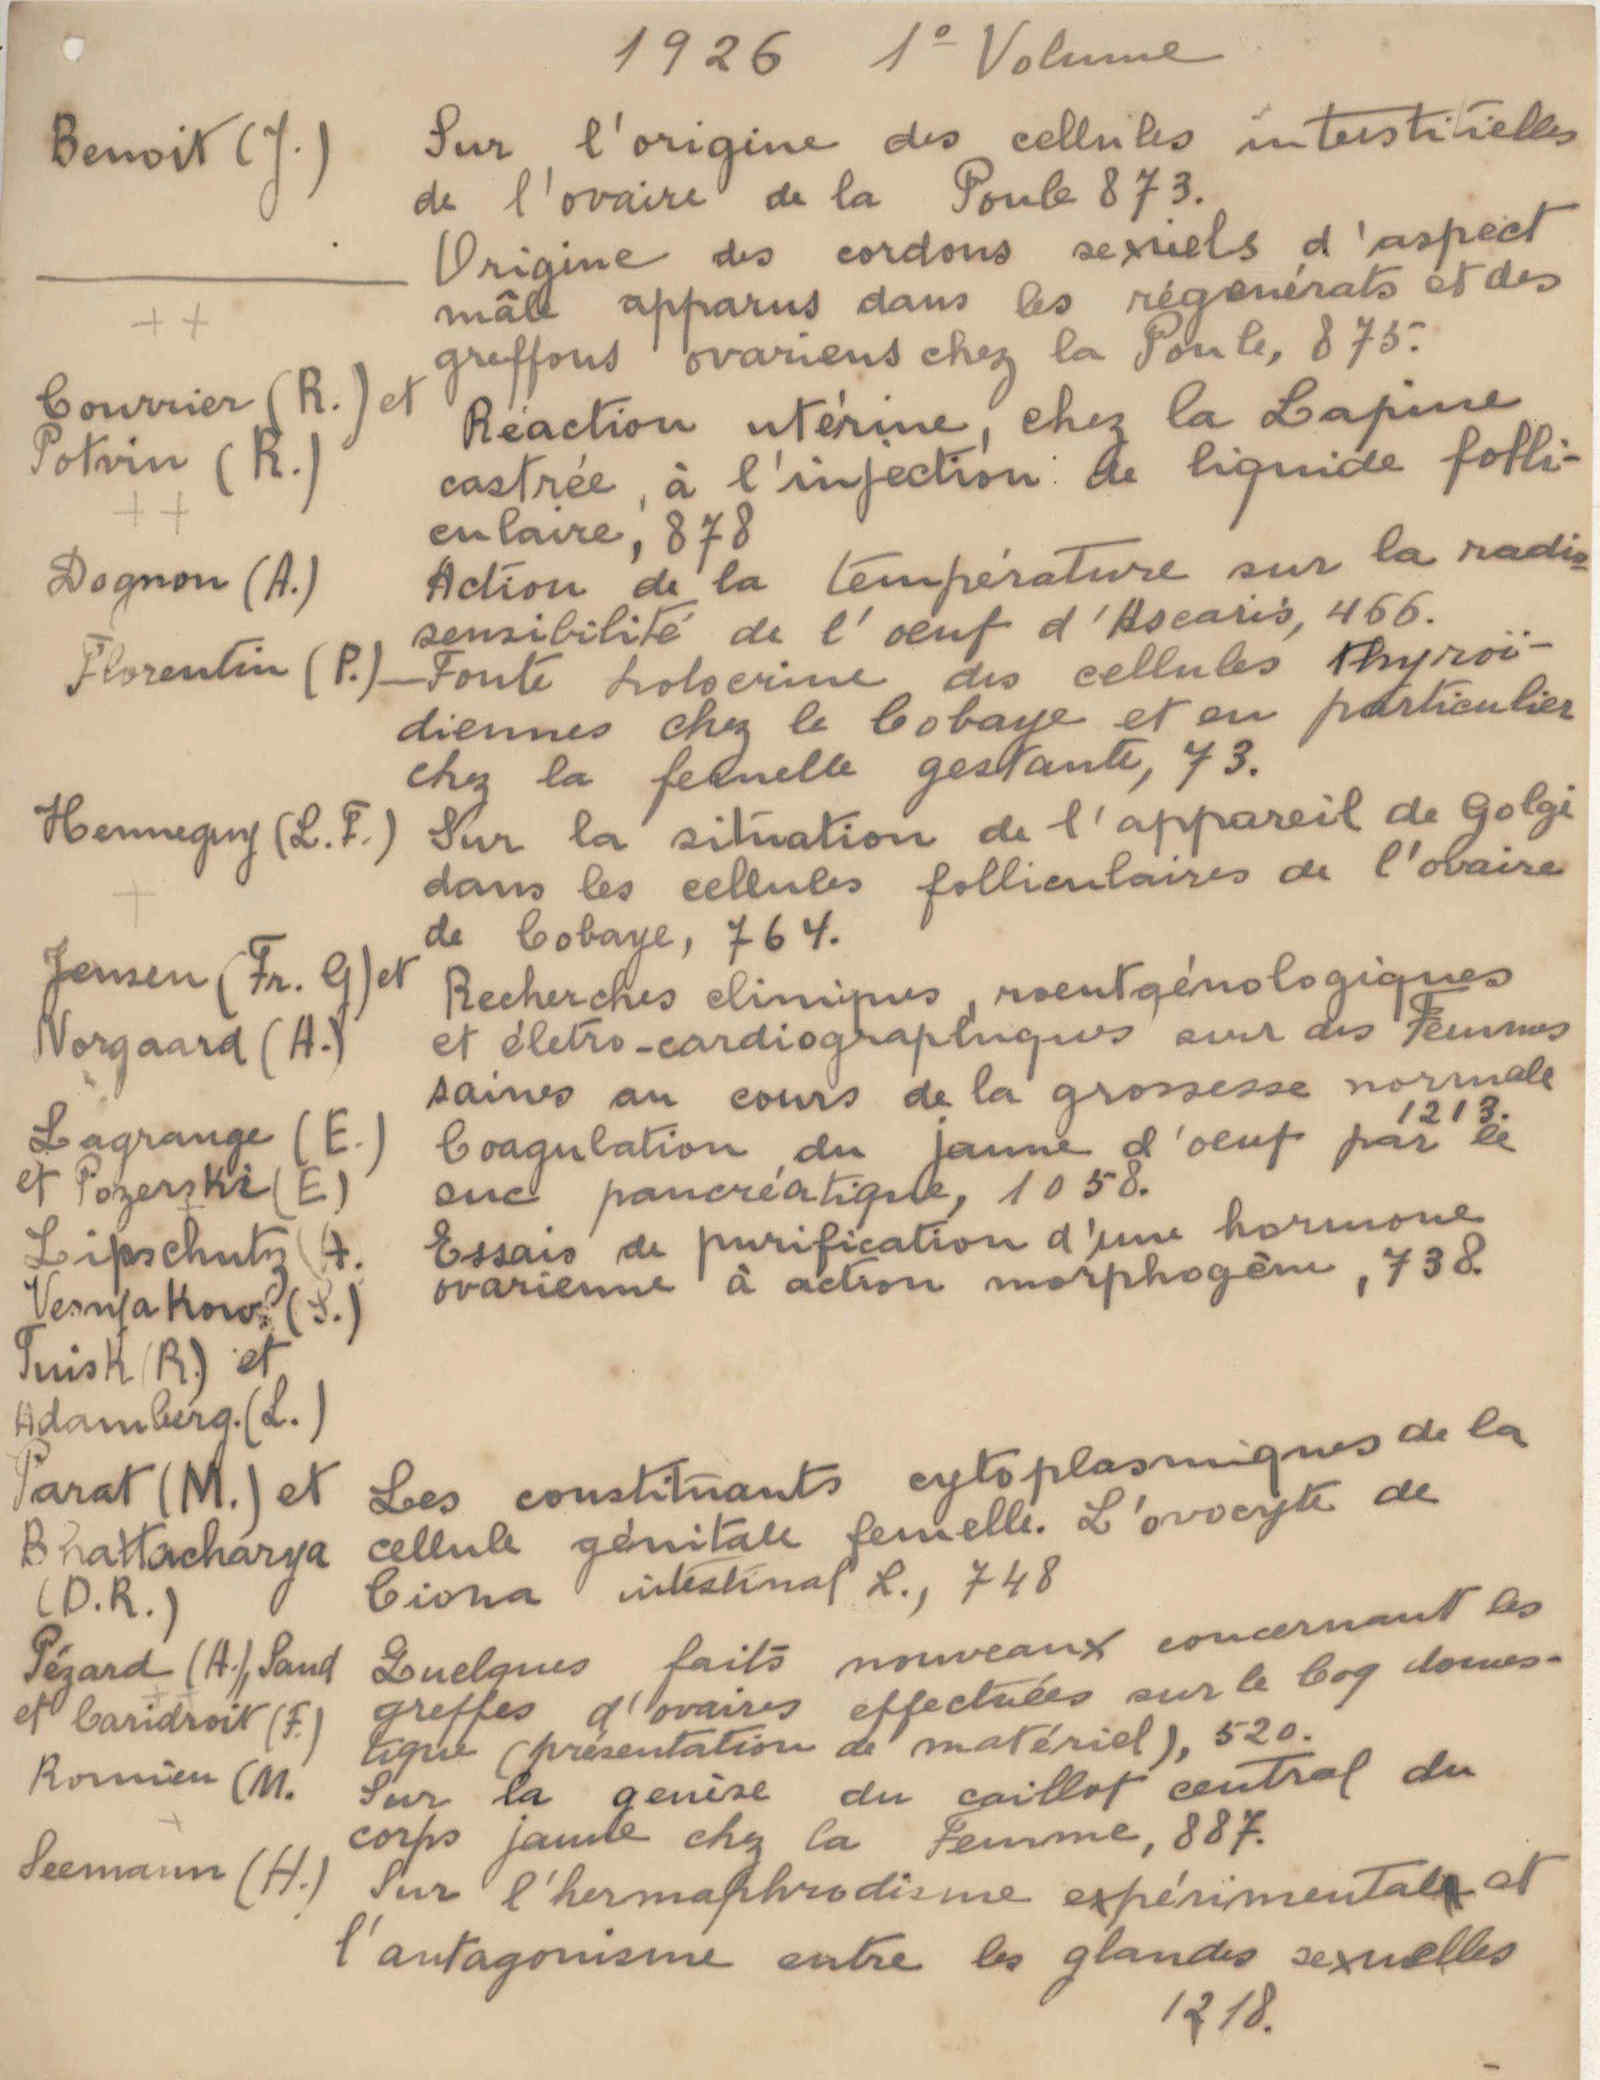 1926 1º Volume
Benoit (J.) Sur l'origine des cellules interstitielles
de l'ovaire de la Poule 873.
Origine des cordons sexuels d'aspect
mâle apparus dans les régenérats et des
++
greffons ovariens chez la Poule, 875.
Courrier (R.) et Réaction utérine, chez la Lapine
Potvin (R.) castrée, à l'injection de liquide folli-
++
culaire, 878
Dognon (A.) Action de la température sur la radio-
sensibilité de l'oeuf d'Ascaris, 466.
Florentin (P.) — Fonte holocrine des cellules thyroï-
diennes chez le Cobaye et en particulier
chez la femelle gestante, 73.
Henneguy (L. F.) Sur la situation de l'appareil de Golgi
dans les cellules folliculaires de l'ovaire
+
de Cobaye, 764.
Jensen (Fr. G) et Recherches cliniques, roentgénologiques
Norgaard (A.) et életro-cardiographiques sur des Femmes
saines au cours de la grossesse normale
1213.
Lagrange (E.) Coagulation du jaune d'oeuf par le
et Pozerski (E) suc pancréatique, 1058.
+
Lipschutz (A. Essais de purification d'une hormone
Vesnjakow (S.) ovarienne à action morphogène, 738.
Tuisk (R.) et
Adamberg. (L.)
Parat (M.) et Les constituants cytoplasmiques de la
Bhattacharya cellule génitale femelle. L'ovocyte de
(D.R.) Ciona intestinal L., 748
Pézard (A.), Sand Quelques faits nouveaux concernant les
++
et Caridroit (F.) greffes d'ovaires effectuées sur le Coq domes-
tique (présentation de matériel), 520.
Romieu (M. Sur la genèse du caillot central du
+
corps jaune chez la Femme, 887.
Seemann (H.) Sur l'hermaphrodisme expérimental et
l'antagonisme entre les glandes sexuelles
1218.